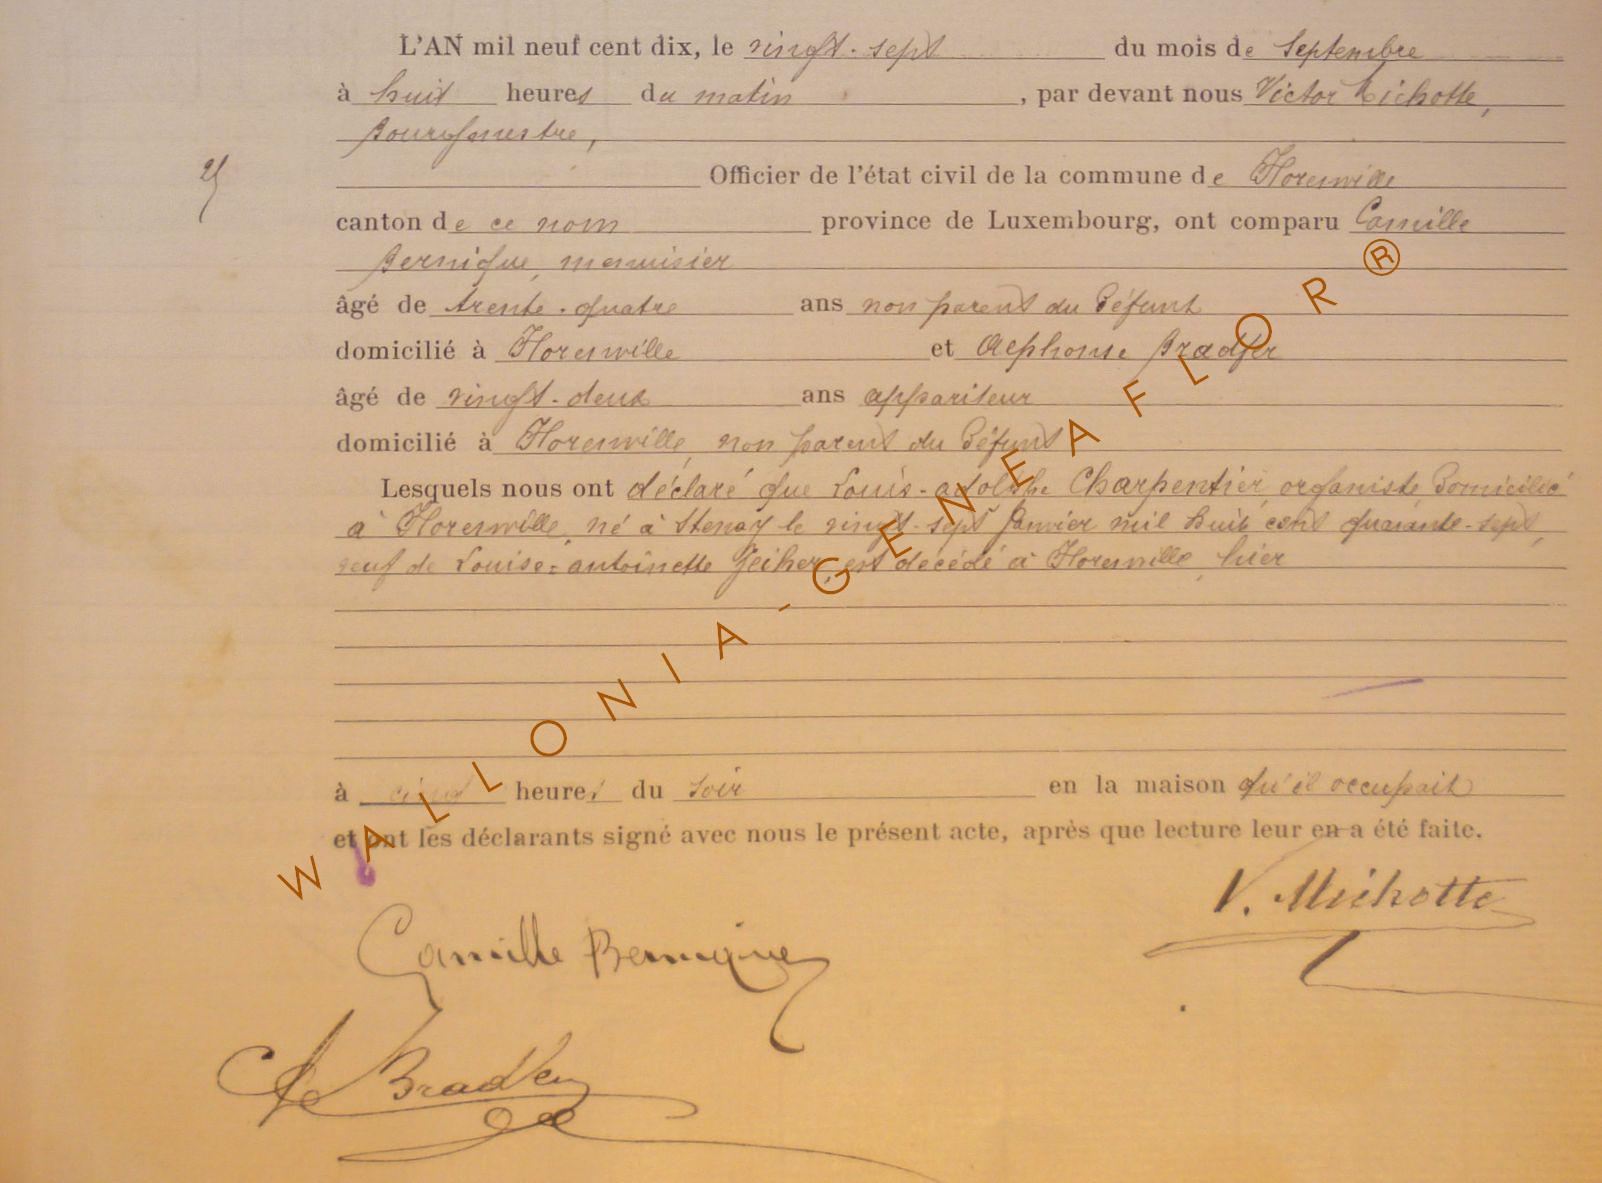 L'AN mil neuf cent dix, le vingt-sept du mois de Septembre
à huit heures du matin , par devant nous Victor Michotte,
Bourgmestre,
25
Officier de l'état civil de la commune de Florenville
canton de ce nom province de Luxembourg, ont comparu Camille
Bernique, menuisier
âgé de trente-quatre ans non parent du défunt
domicilié à Florenville et Alphonse Bradfer
âgé de vingt-deux ans appariteur
domicilié à Florenville, non parent du défunt
Lesquels nous ont déclaré que Louis-adolphe Charpentier, organiste domicilié
à Florenville, né à Stenay le vingt-sept Janvier mil huit cent quarante-sept,
veuf de Louise-antoinette est décédé à Florenville, hier
à cinq heures du soir en la maison qu'il occupait
et ont les déclarants signé avec nous le présent acte, après que lecture leur en a été faite.
V. Michotte
Camille Bernique
Bradfer
WALLONIA-GENEAFLOR®